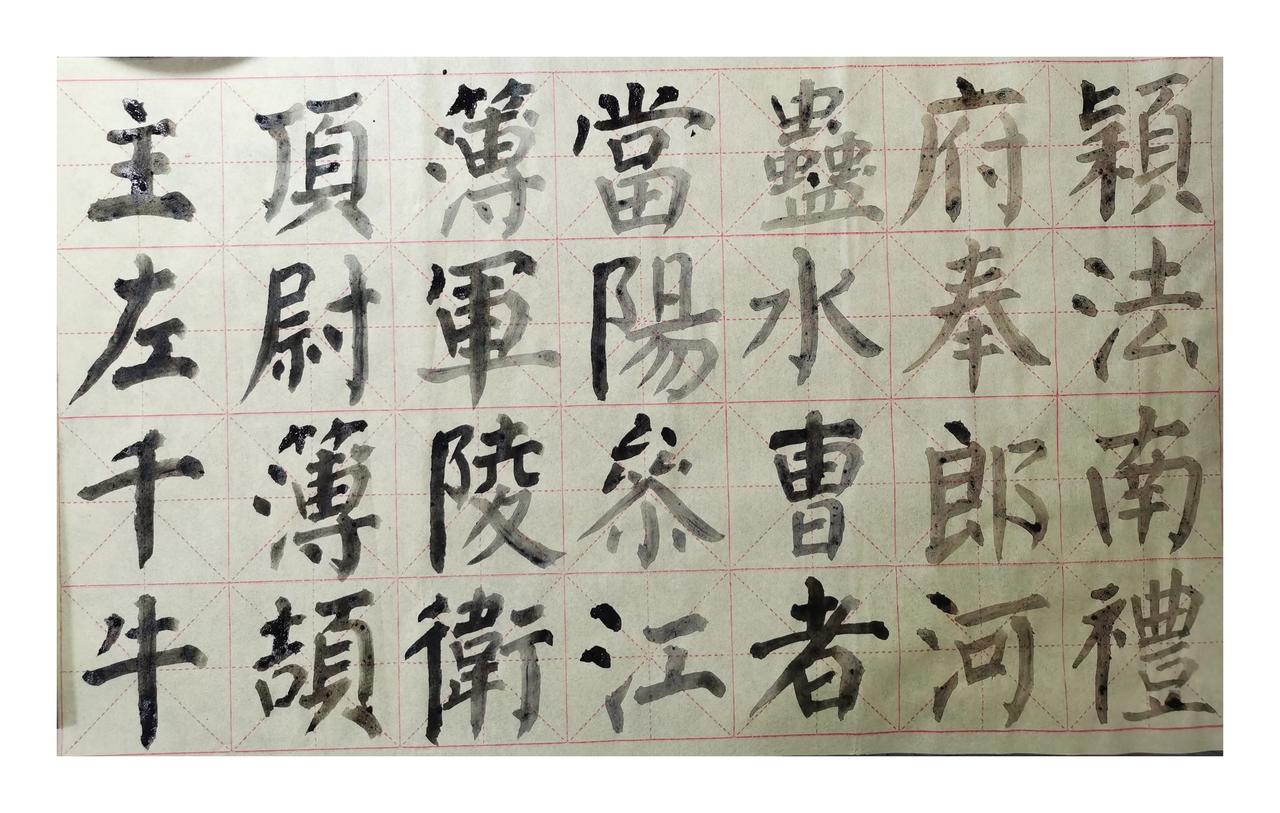 穎法南禮
府奉郎河
蠱水曹者
當陽參江
簿軍陵衛
頂尉簿頡
主左千牛